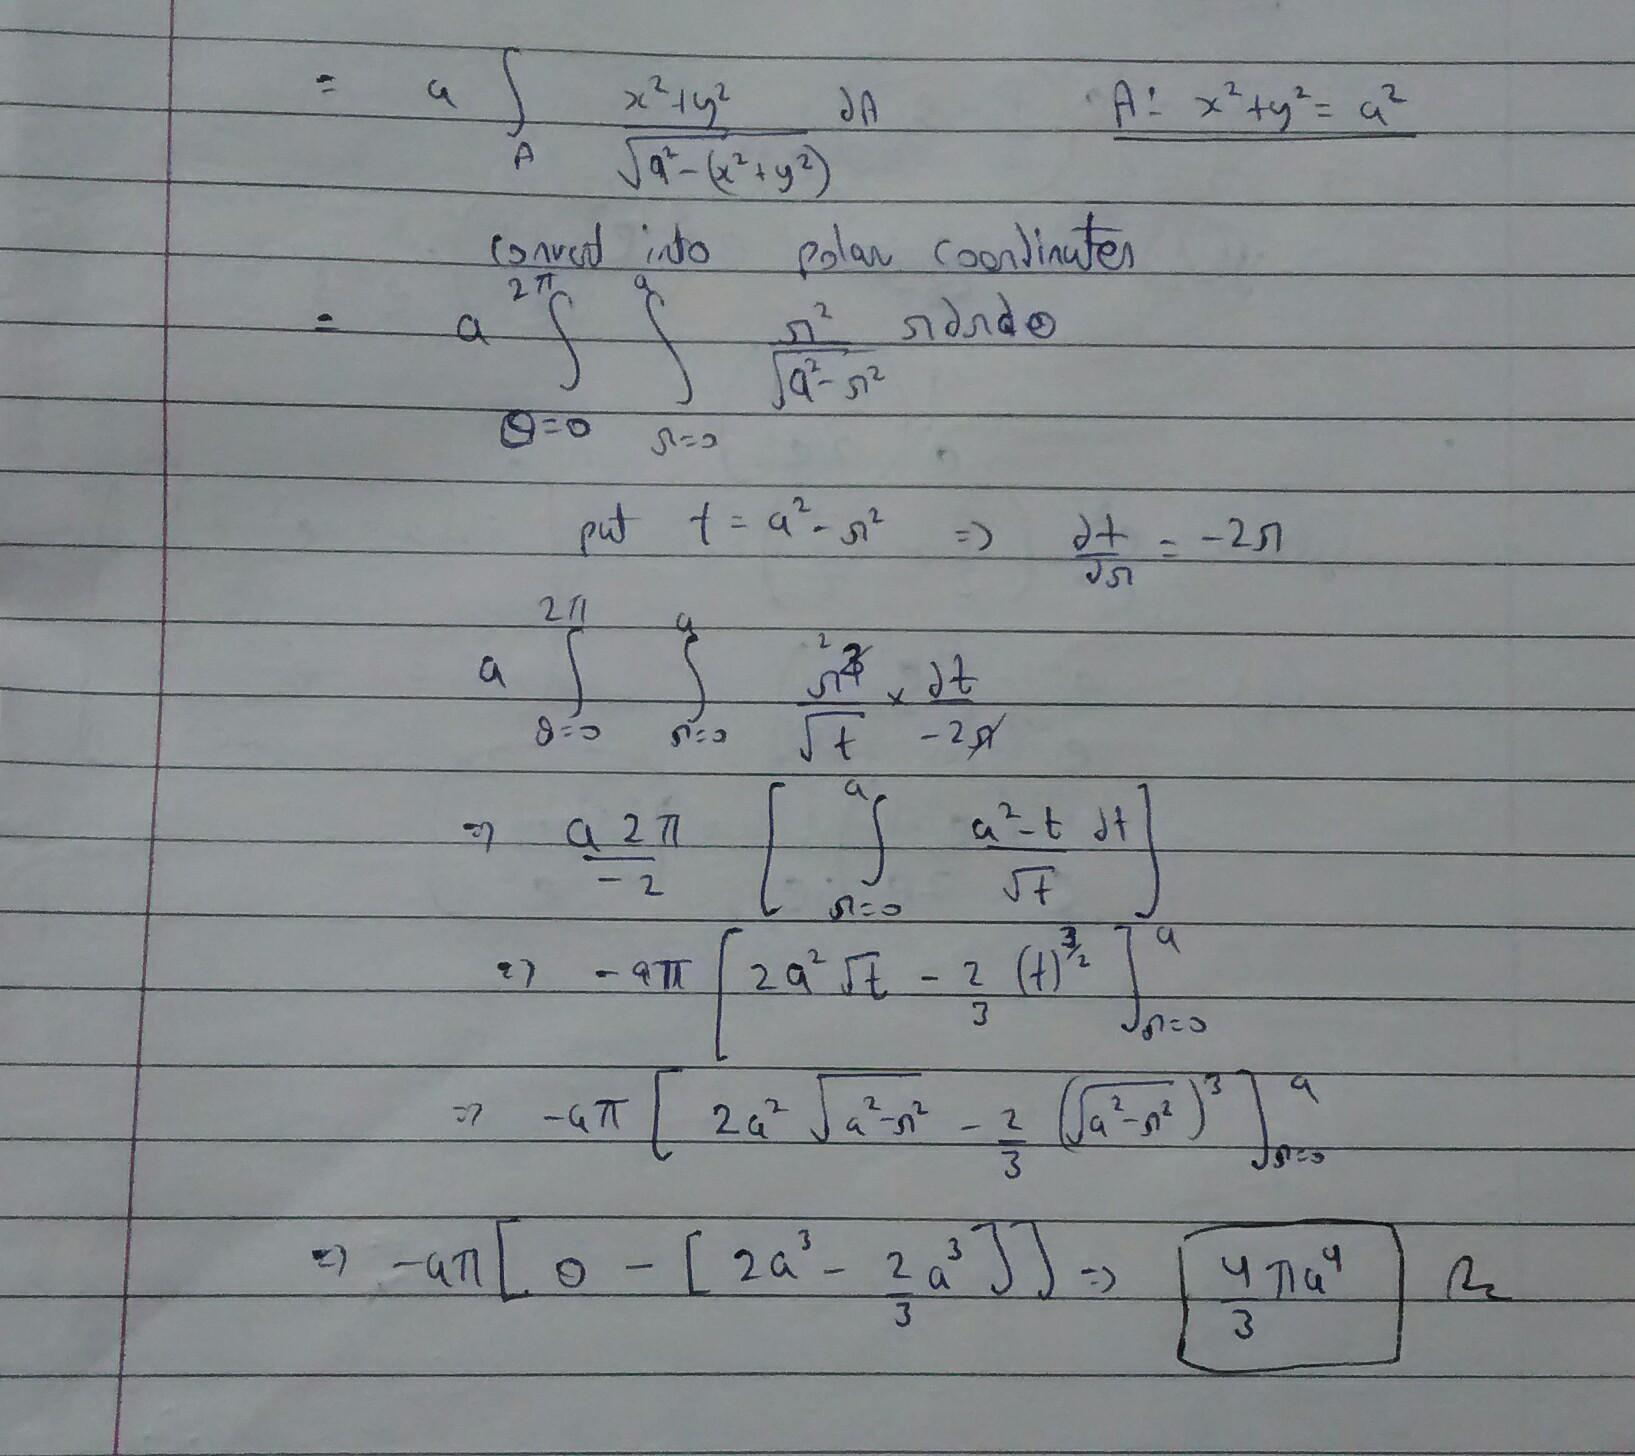 = a ∫_A (x²+y²)/√(a²-(x²+y²)) dA A: x²+y² = a²
convert into polar coordinates
= a ∫_{θ=0}^{2π} ∫_{r=0}^{a} r²/√(a²-r²) r dr dθ
put t = a²-r² => dt/dr = -2r
a ∫_{θ=0}^{2π} ∫_{r=0}^{a} r²/√t × dt/-2r
=> a 2π/-2 [ ∫_{r=0}^{a} (a²-t)/√t dt ]
=> -aπ [ 2a² √t - 2/3 (t)^{3/2} ]_{r=0}^{a}
=> -aπ [ 2a² √(a²-r²) - 2/3 (√(a²-r²))³ ]_{r=0}^{a}
=> -aπ [ 0 - [ 2a³ - 2/3 a³ ] ] => 4/3 πa⁴